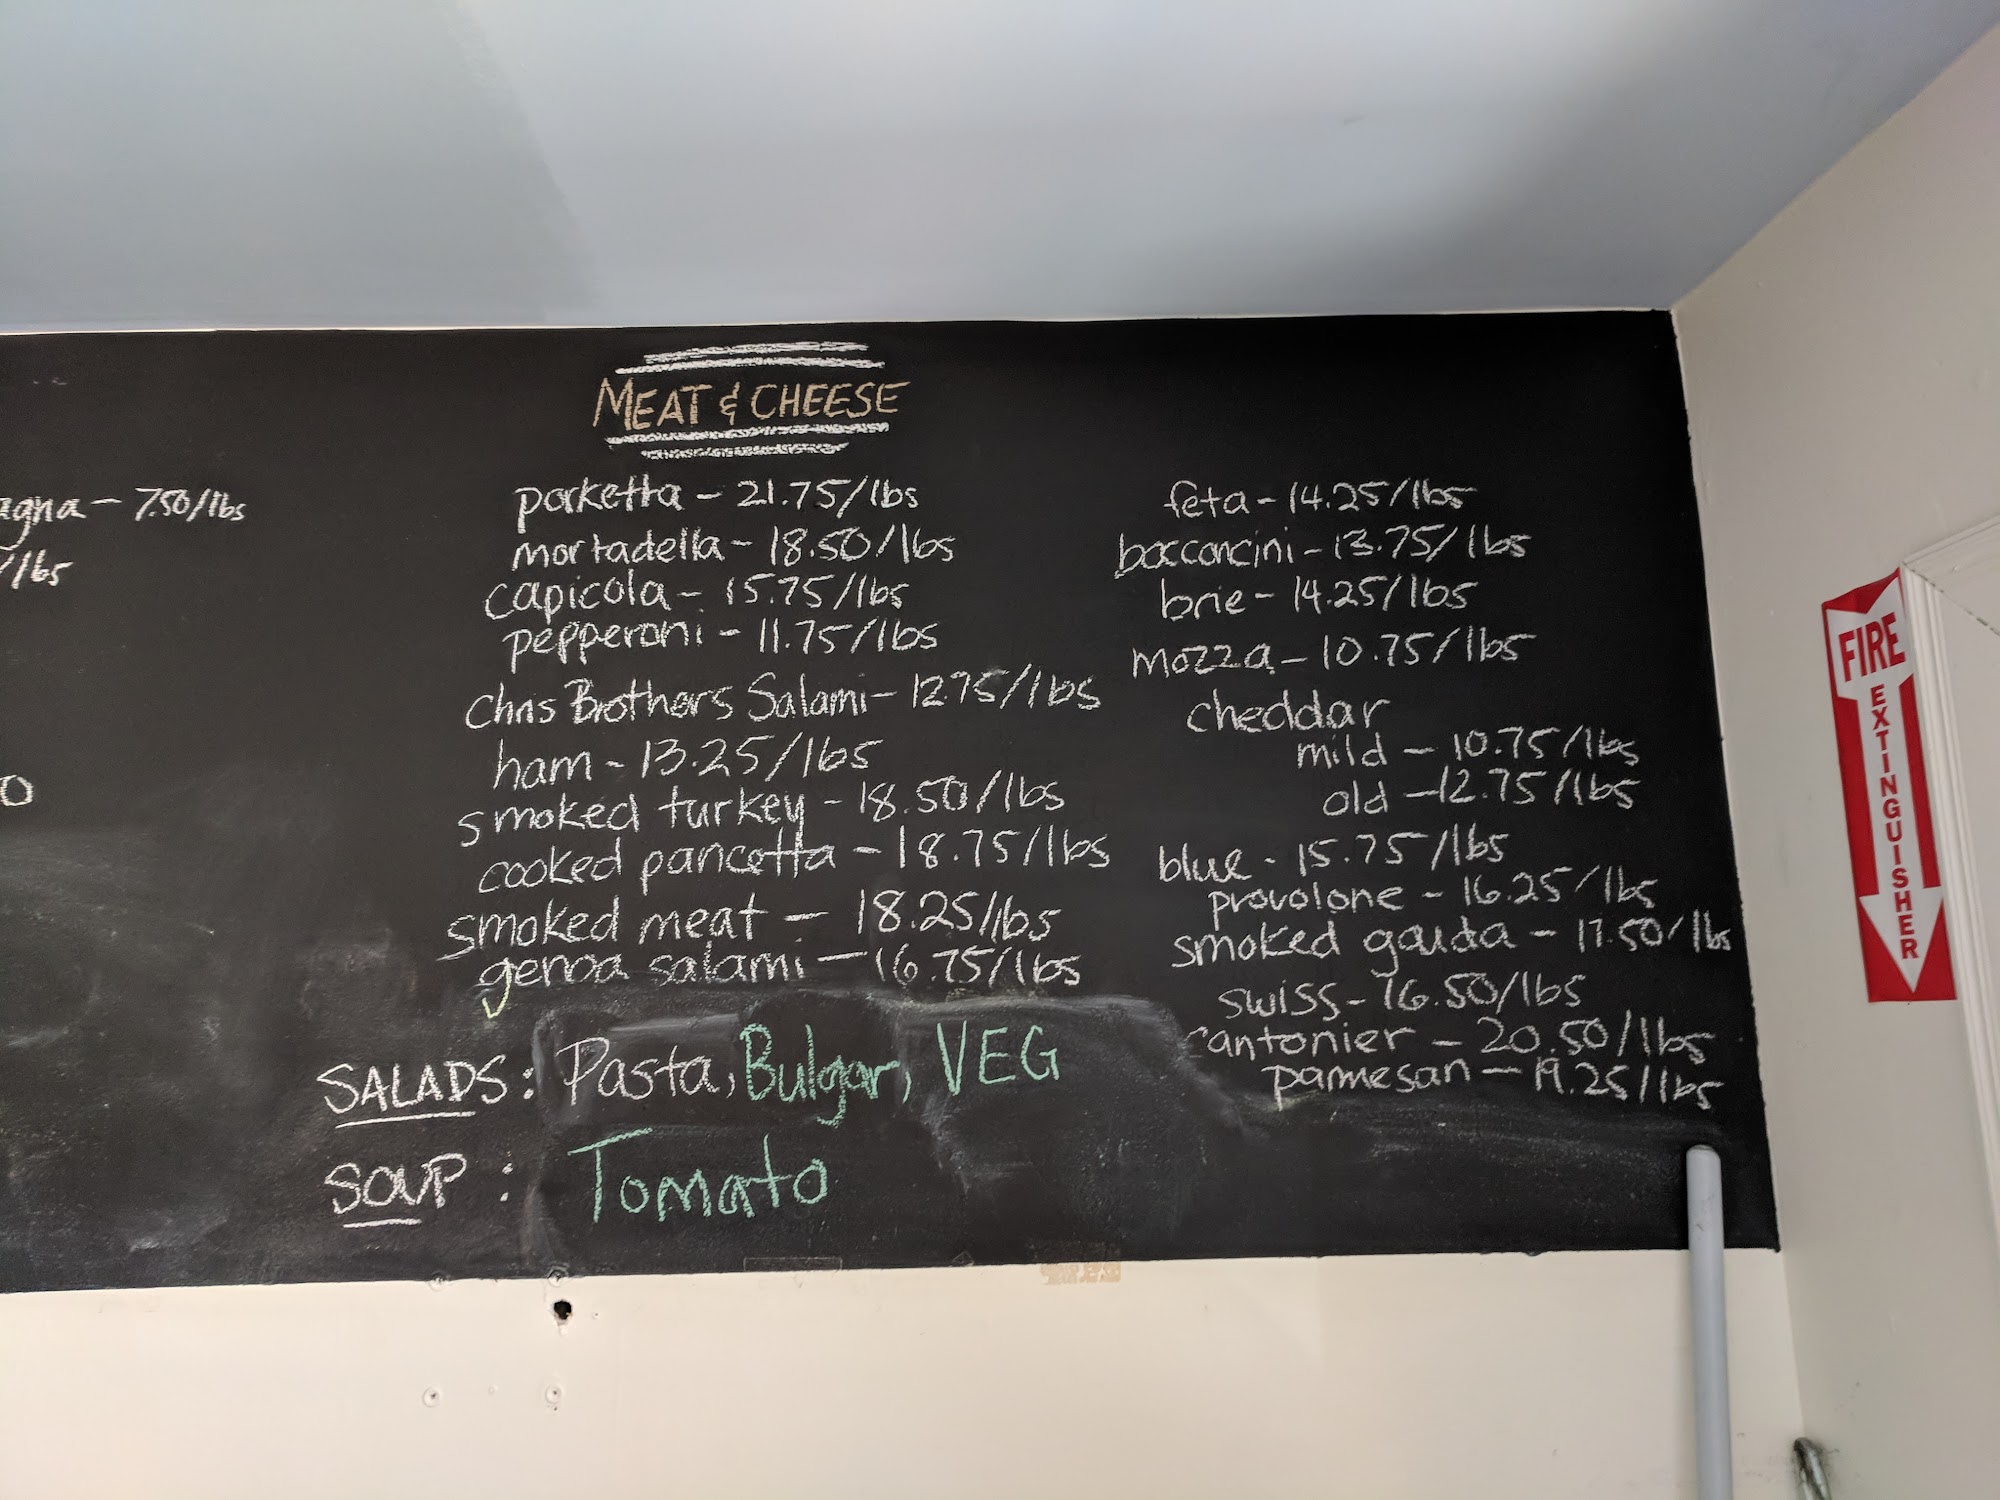 agna - 7.50/lbs
/lbs
MEAT & CHEESE
porketta - 21.75/lbs
mortadella - 18.50/lbs
capicola - 15.75/lbs
pepperoni - 11.75/lbs
Chris Brothers Salami - 12.75/lbs
ham - 13.25/lbs
smoked turkey - 18.50/lbs
cooked pancetta - 18.75/lbs
smoked meat - 18.25/lbs
genoa salami - 16.75/lbs
feta - 14.25/lbs
bocconcini - 13.75/lbs
brie - 14.25/lbs
mozza - 10.75/lbs
cheddar
mild - 10.75/lbs
old - 12.75/lbs
blue - 15.75/lbs
provolone - 16.25/lbs
smoked gouda - 17.50/lbs
swiss - 16.50/lbs
cantonier - 20.50/lbs
parmesan - 19.25/lbs
SALADS: Pasta, Bulgar, VEG
SOUP: Tomato
FIRE
EXTINGUISHER